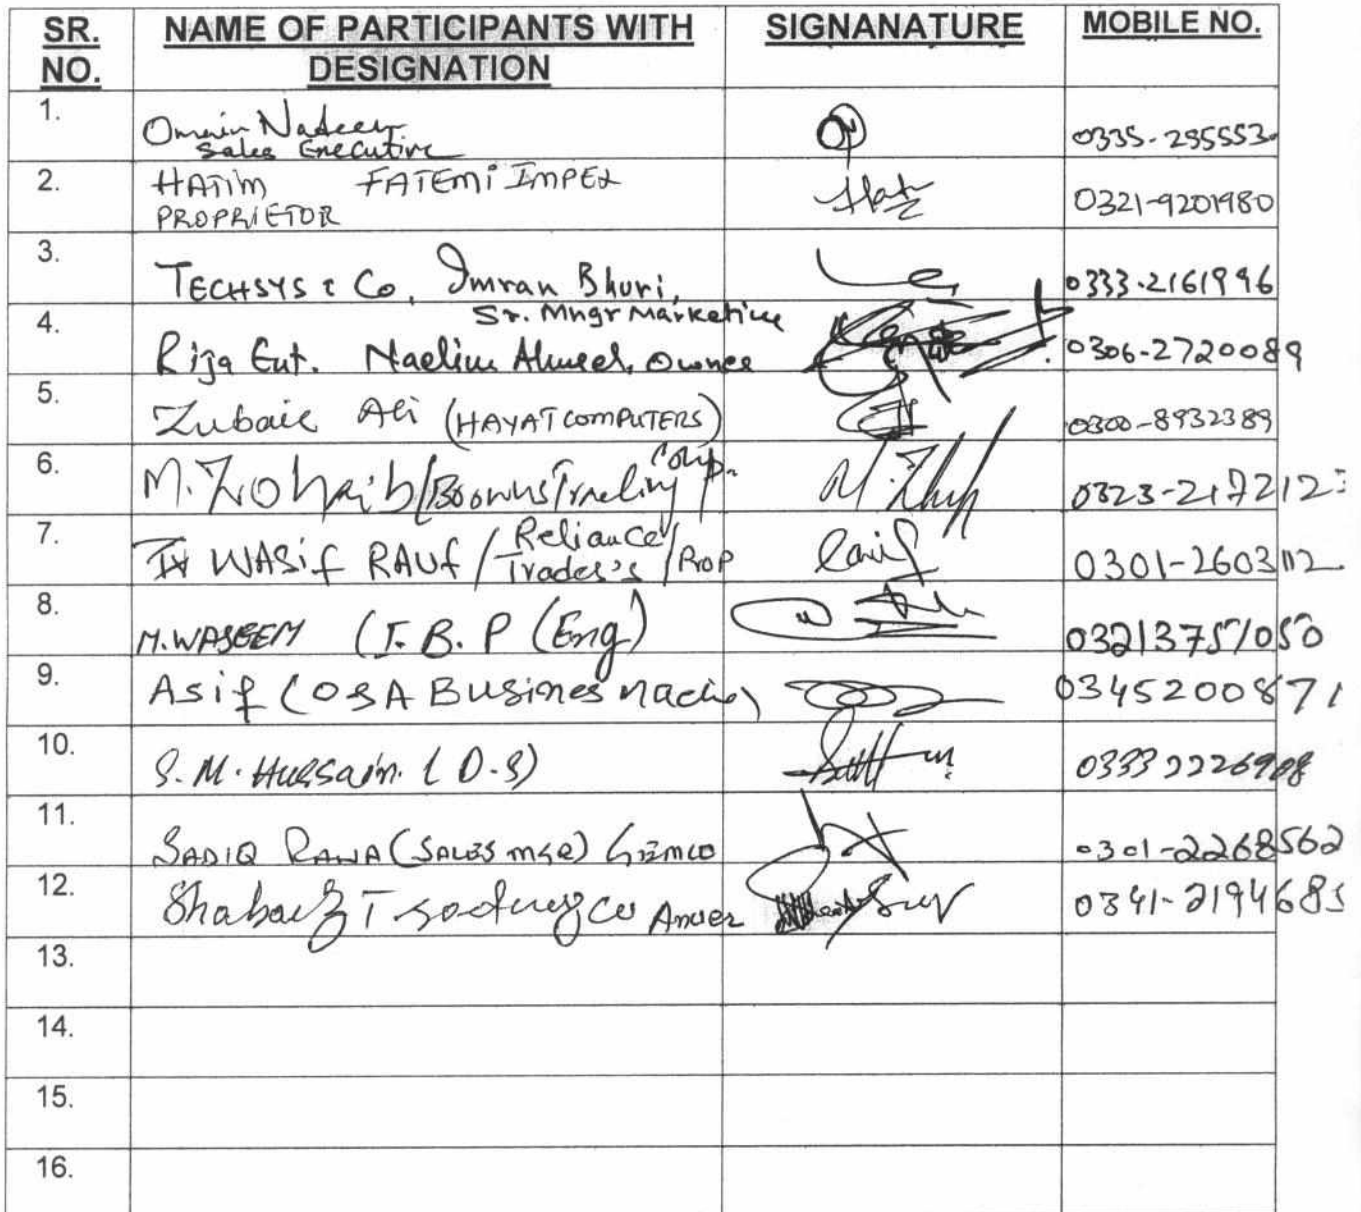 SR. NO. NAME OF PARTICIPANTS WITH DESIGNATION SIGNANATURE MOBILE NO.
1. Omair Nadeem Sales Executive 0335-295553
2. HATIM FATEMI IMPEX PROPRIETOR 0321-9201980
3. TECHSYS & Co, Imran Bhuri, Sr. Mngr Marketing 0333-2161996
4. Rija Ent. Naelim Ahmed, Owner 0306-2720089
5. Zubair Ali (HAYAT COMPUTERS) 0300-8932389
6. M. Zohaib / Trading Corp. M. 0323-2172123
7. WASif RAUf / Reliance Trades's / Prop 0301-2603112
8. M. WASEEM (I.B.P (Eng) 03213757050
9. Asif (OSA Busines machi) 0345200871
10. S. M. Hussain. (D.S) 03332226908
11. SADIQ RAWA (SALES MGR) GEMCO 0301-2268562
12. Shabaz Trading Co Anver 0341-2194685
13.
14.
15.
16.